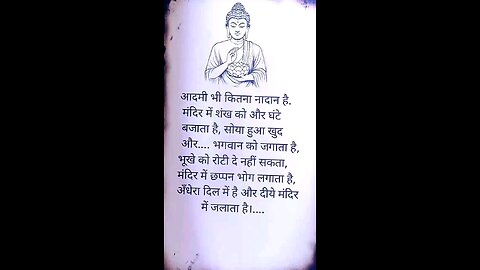 आदमी भी कितना नादान है.
मंदिर में शंख को और घंटे
बजाता है, सोया हुआ खुद
और.... भगवान को जगाता है,
भूखे को रोटी दे नहीं सकता,
मंदिर में छप्पन भोग लगाता है,
अँधेरा दिल में है और दीये मंदिर
में जलाता है।....